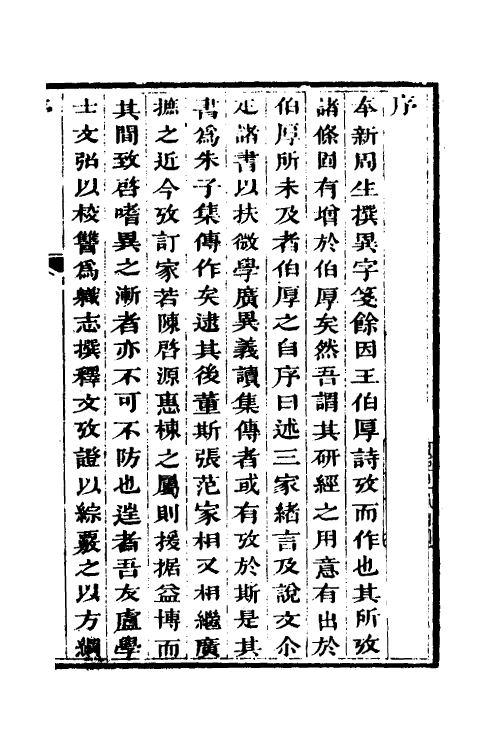 序
奉新周生撰異字箋餘因王伯厚詩攷而作也其所攷
諸條固有增於伯厚矣然吾謂其研經之用意有出於
伯厚所未及者伯厚之自序曰述三家緒言及說文尒
疋諸書以扶微學廣異義讀集傳者或有攷於斯是其
書爲朱子集傳作矣逮其後董斯張范家相又相繼廣
摭之近今攷訂家若陳啓源惠棟之屬則援据益博而
其間致啓嗜異之漸者亦不可不防也遑者吾友盧學
士文弨以校讐爲職志撰釋文攷證以綜覈之以方綱